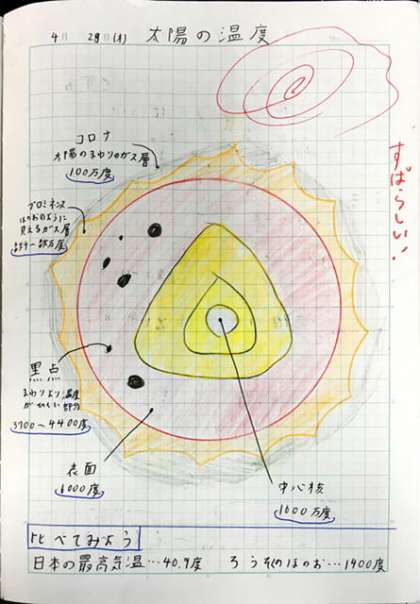 4月 28日(木) 太陽の温度
すばらしい!
コロナ
太陽のまわりのガス層
100万度
プロミネンス
ほのおのように
見えるガス層
黒点
まわりより温度
が低い部分
3700〜4400度
表面
6000度
中心核
1600万度
比べてみよう
日本の最高気温…40.9度 ろうそくのほのお…1400度